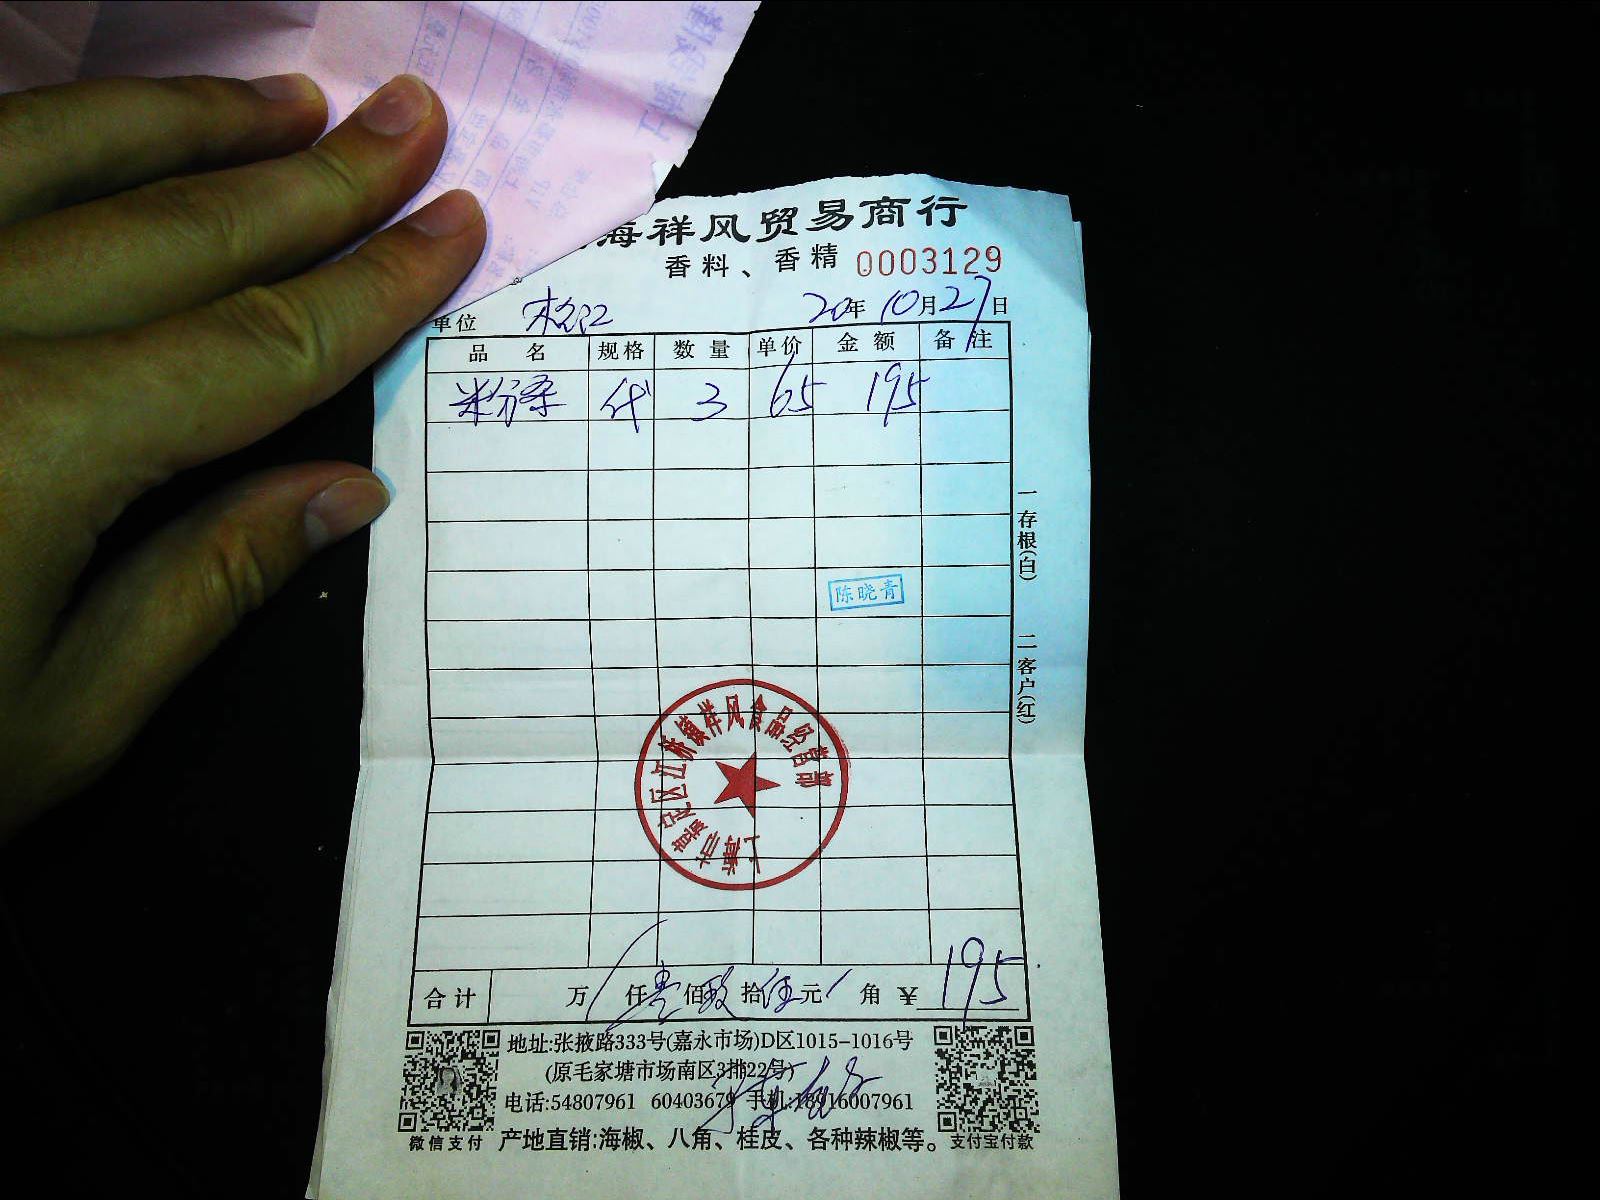 海祥风贸易商行
香料、香精 0003129
单位 松江 20年10月27日
品名 规格 数量 单价 金额 备注
米粉条 代 3 65 195
一存根(白) 二客户(红)
陈晓青
上海市嘉定区江桥镇祥风食品经营部
合计 万 仟壹佰玖拾伍元 角 ¥ 195
地址:张掖路333号(嘉永市场)D区1015-1016号
(原毛家塘市场南区3排22号)
电话:54807961 60403679 手机:18916007961
微信支付 产地直销:海椒、八角、桂皮、各种辣椒等。 支付宝付款